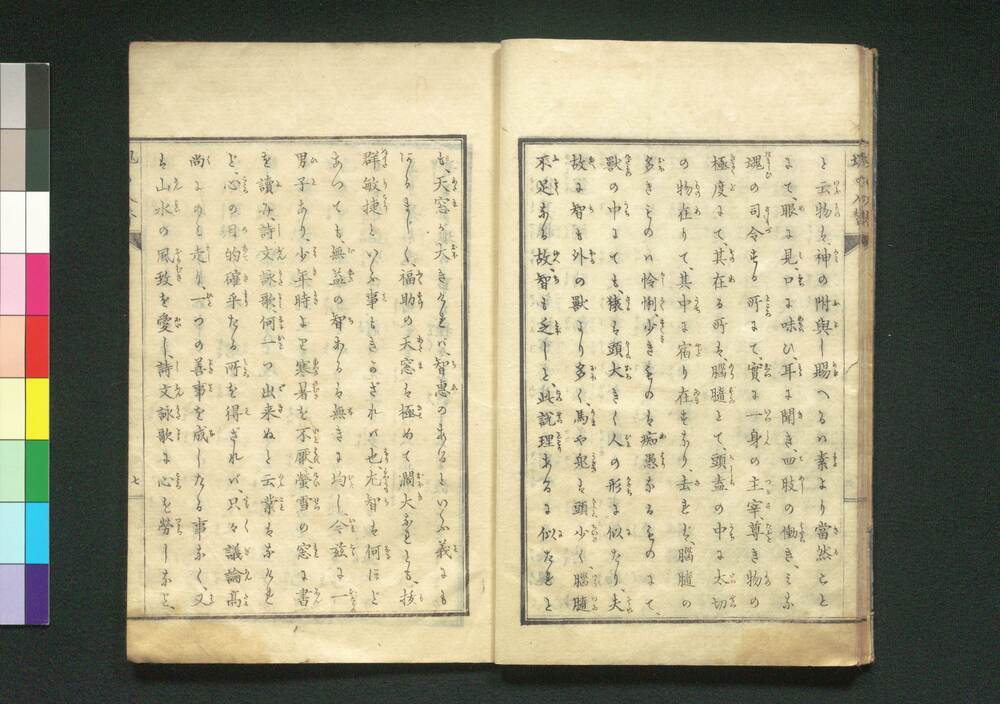 と云物は神の附與し賜へるハ素より當然こと
にて、眼に見、口に味ひ、耳に聞き、四肢の働き、ミな
魂の司令する所にて、實に一身の主宰、尊き物の
極度にて、其在る所は、腦髓とて頭盖の中に大切
の物在りて、其中に宿り在すなり、去れば、腦髓の
多きものハ怜悧、少きものは痴愚なるものにて、
獸の中にても、猿は頭大きく人の形に似たり、夫
故に智も外の獸より多く、馬や兎は頭少く、腦髓
不足なる故、智も乏しと、此説理あるに似たれど
も、天窓が大きくとバ、智惠のあるといふ義にも
あるまじく、福助の天窓は極めて濶大なれども、拔
群敏捷といふ事もきかざれバ也、尤智は何ほど
あつても、無益の智あるは無きに均し、今茲に一
男子あり、少年時より寒暑を不厭、螢雪の窓に書
を讀み、詩文詠歌、何一つ出来ぬと云業はなけれ
ど、心の目的確乎たる所を得ざれバ、只々議論高
尚にのミ走り、一つの善事を成したる事なく、又
は山水の風致を愛し、詩文詠歌に心を勞しなど、
七